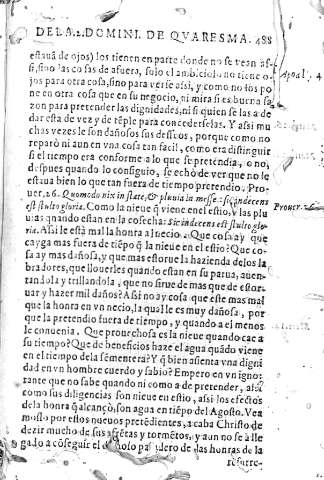 DE LA.2.DOMINI. DE QVARESMA. 488
estauã de ojos) los tienen en parte donde no se vean assi,
sino las cosas de afuera, solo el ambicioso no tiene o-
jos para otra cosa, sino para verse assi, y como no los po
ne en otra cosa que en su negocio, ni mira si es buena sa
zon para pretender las dignidades, ni si quien se las a de
dar esta de vez y de tẽple para concederselas. Y assi mu
chas vezes le son dañosos sus desseos, porque como no
reparò ni aun en vna cosa tan facil, como era distinguir
si el tiempo era conforme a lo que se pretendia, o no,
despues quando lo consiguio, se echò de ver que no le
estaua bien lo que tan fuera de tiempo pretendio. Pro-
uer. 26. Quomodo nix in æstate, & pluuia in messe: sic indecens
est stulto gloria. Como la nieue q̃ viene en el estio, y las plu
uias quando estan en la cosecha: Sic indecens est stulto glo-
ria. Assi le està mal la honra al necio. Que cosa ay que
cayga mas fuera de tiẽpo q̃ la nieue en el estio? Que co-
sa ay mas dañosa, y que mas estorue la hazienda de los la
bradores, que llouerles quando estan en su parua, auen-
tandola y trillandola, que no sirue de mas que de estor-
uar y hazer mil daños? Assi no ay cosa que este mas mal
que la honra en vn necio, la qual le es muy dañosa, por
que la pretendio fuera de tiempo, y quando a el menos
le conuenia. Que prouechosa es la nieue quando cae a
su tiempo? Que de beneficios haze el agua quãdo viene
en el tiempo de la sementera? Y q̃ bien assienta vna digni
dad en vn hombre cuerdo y sabio? Empero en vn igno-
rante que no sabe quando ni como a de pretender, assi
como sus diligencias son nieue en estio, assi los efectos
de la honra q̃ alcançò, son agua en tiẽpo del Agosto. Vea
moslo por estos nueuos pretẽdientes, acaba Christo de
dezir mucho de sus afrẽtas y tormẽtos, y aun no se à lle
gado a cõseguir el doloso paradero de las honras de la
resurre-
Apoal. 4
Prouer.